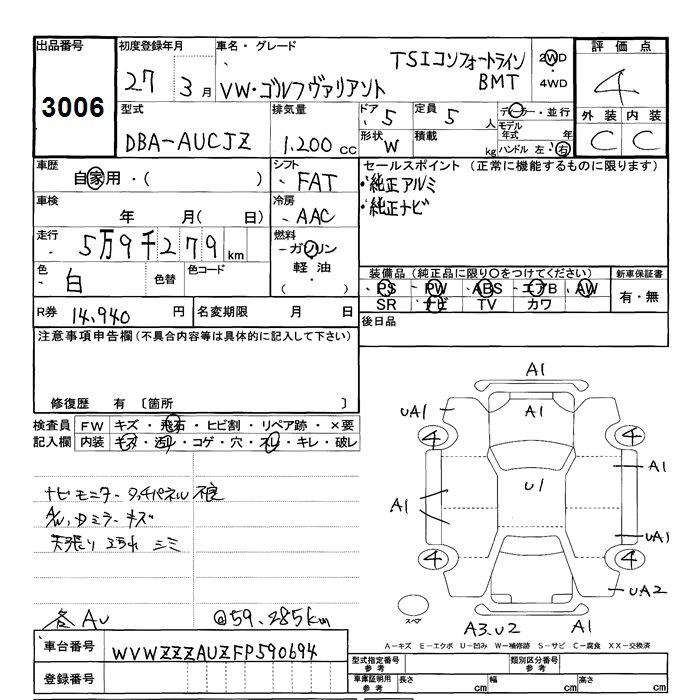 出品番号
3006
初度登録年月
27 3月
車名・グレード
TSIコンフォートライン
BMT
VW・ゴルフヴァリアント
2WD
4WD
評価点
4
外装 内装
C C
型式
DBA-AUCJZ
排気量
1.200 cc
ドア 5
定員 5 人
ディーラー・並行
形状 W
積載 kg
モデル年式 年
ハンドル 左・右
車歴
自家用・( )
シフト
FAT
セールスポイント (正常に機能するものに限ります)
・純正アルミ
・純正ナビ
車検
年 月( 日)
冷房
AAC
走行
5万9千279km
燃料
ガソリン
軽油
・( )
色
白
色替
色コード
装備品 (純正品に限り○をつけてください)
PS PW ABS エアB AW
SR ナビ TV カワ
新車保証書
有・無
R券 14,940 円
名変期限 月 日
後日品
注意事項申告欄 (不具合内容等は具体的に記入して下さい)
修復歴 有 〔箇所 〕
検査員
記入欄
FW キズ・飛石・ヒビ割・リペア跡・×要
内装 キズ・汚れ・コゲ・穴・スレ・キレ・破レ
ナビモニター タッチパネル不良
A/W,Dミラーキズ
天張り ヨゴレ シミ
各AU
@59.285km
A1
UA1
A1
4
4
A1
A1
U1
UA1
4
4
UA2
スペア
A3.U2
A1
A-キズ E-エクボ U-凹み W-補修跡 S-サビ C-腐食 XX-交換済
車台番号
WVWZZZAUZFP590694
登録番号
型式指定番号
参考
類別区分番号
参考
車庫証明用
参考
長さ cm
幅 cm
高さ cm